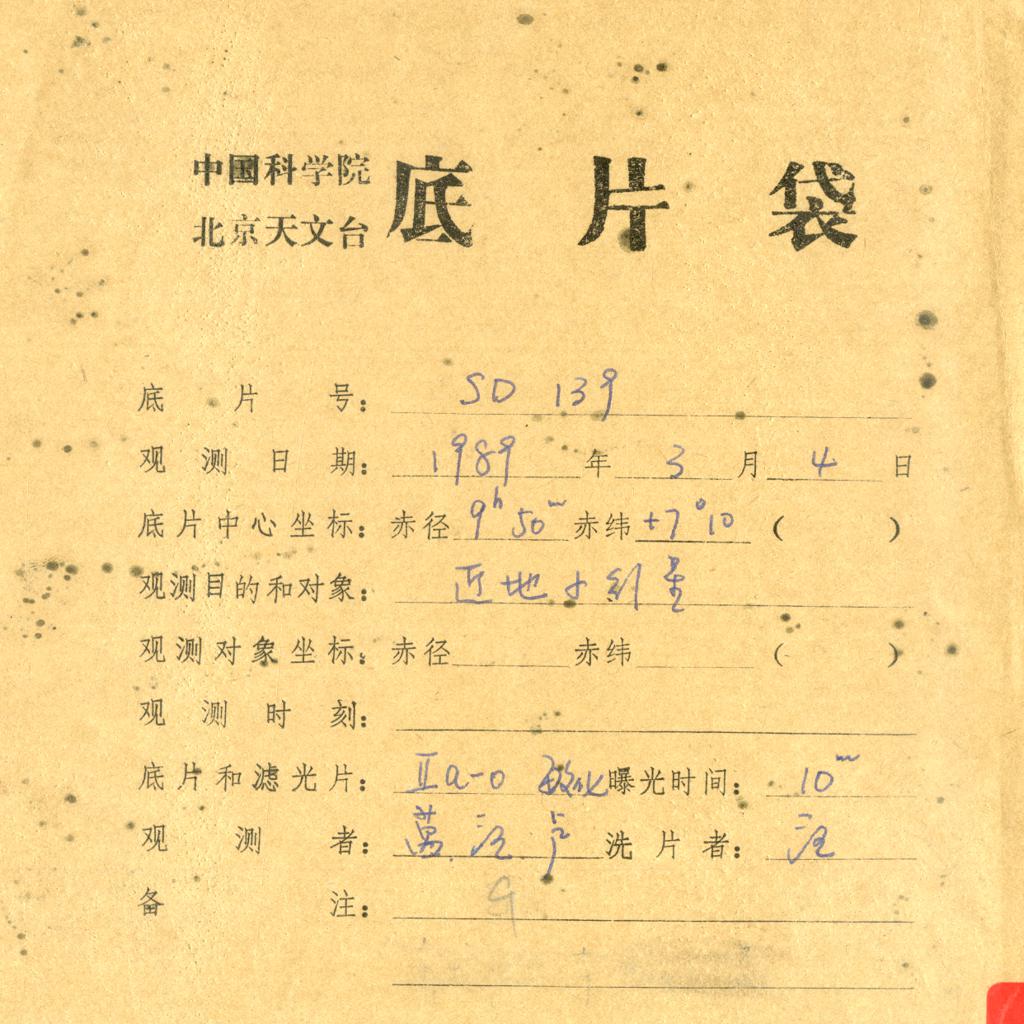 中国科学院
北京天文台 底片袋
底片号： SD 139
观测日期： 1989 年 3 月 4 日
底片中心坐标：赤径 9ʰ 50ᵐ 赤纬 +7°10 （ ）
观测目的和对象： 近地小行星
观测对象坐标：赤径 赤纬 （ ）
观测时刻：
底片和滤光片： IIa-O 敏化 曝光时间： 10ᵐ
观测者： 汪 卢 洗片者： 汪
备注： 9